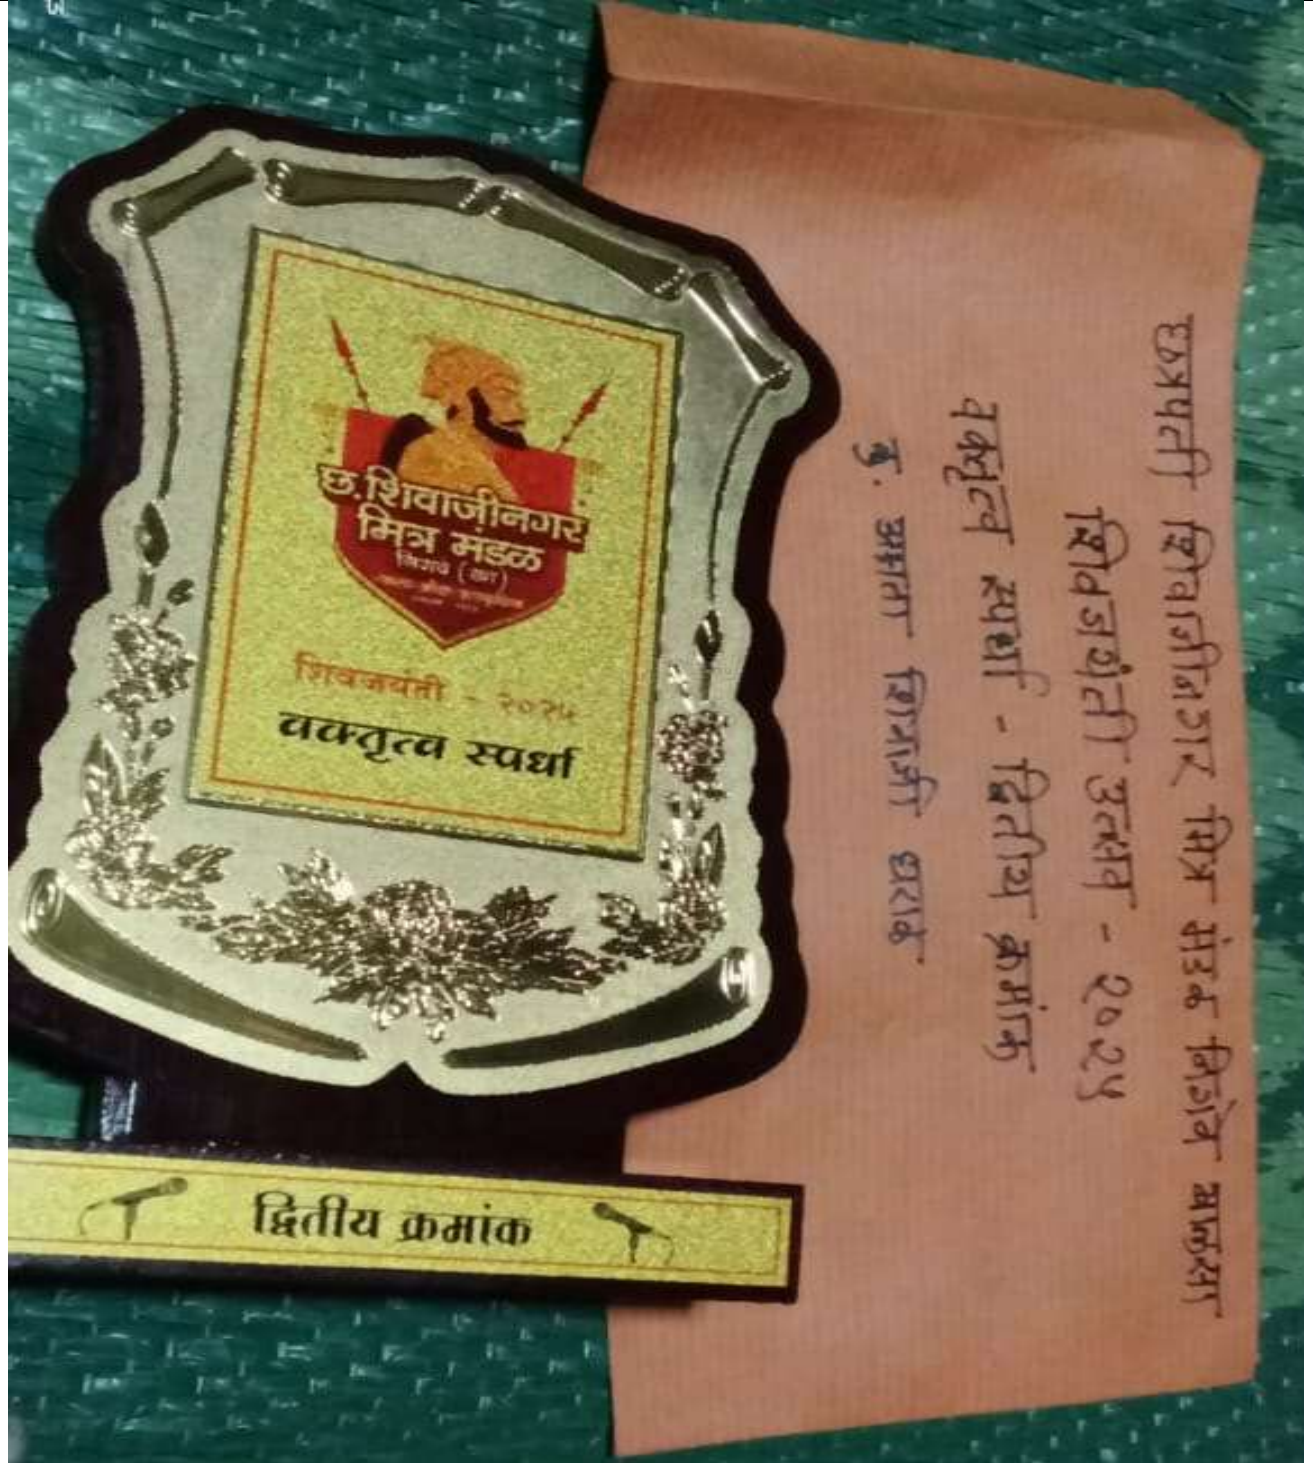 छ. शिवाजीनगर
मित्र मंडळ
शिवजयंती - २०२५
वक्तृत्व स्पर्धा
द्वितीय क्रमांक
छत्रपती शिवाजीनगर मित्र मंडळ
शिवजयंती उत्सव - २०२५
वक्तृत्व स्पर्धा - द्वितीय क्रमांक
कु. शिवाजी घराळ